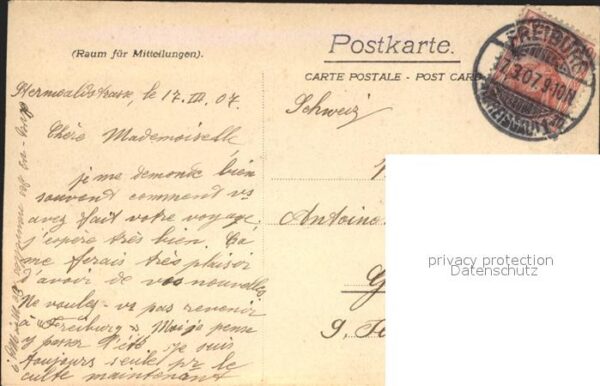 (Raum für Mitteilungen).
Postkarte.
CARTE POSTALE - POST CARD
FREIBURG
7.3.07.9-10N
(BREISGAU)
le 17. III. 07.
Schweiz
Chère Mademoiselle
je me demande bien
souvent comment vs
avez fait votre voyage,
j'espère très bien. Ça
me ferais très plaisir
d'avoir de vos nouvelles
Ne voulez-vs pas revenir
à "Freiburg". Moi je pense
y passer l'été, je suis
toujours seule pr le
culte maintenant
Antoine
G
9.
privacy protection
Datenschutz